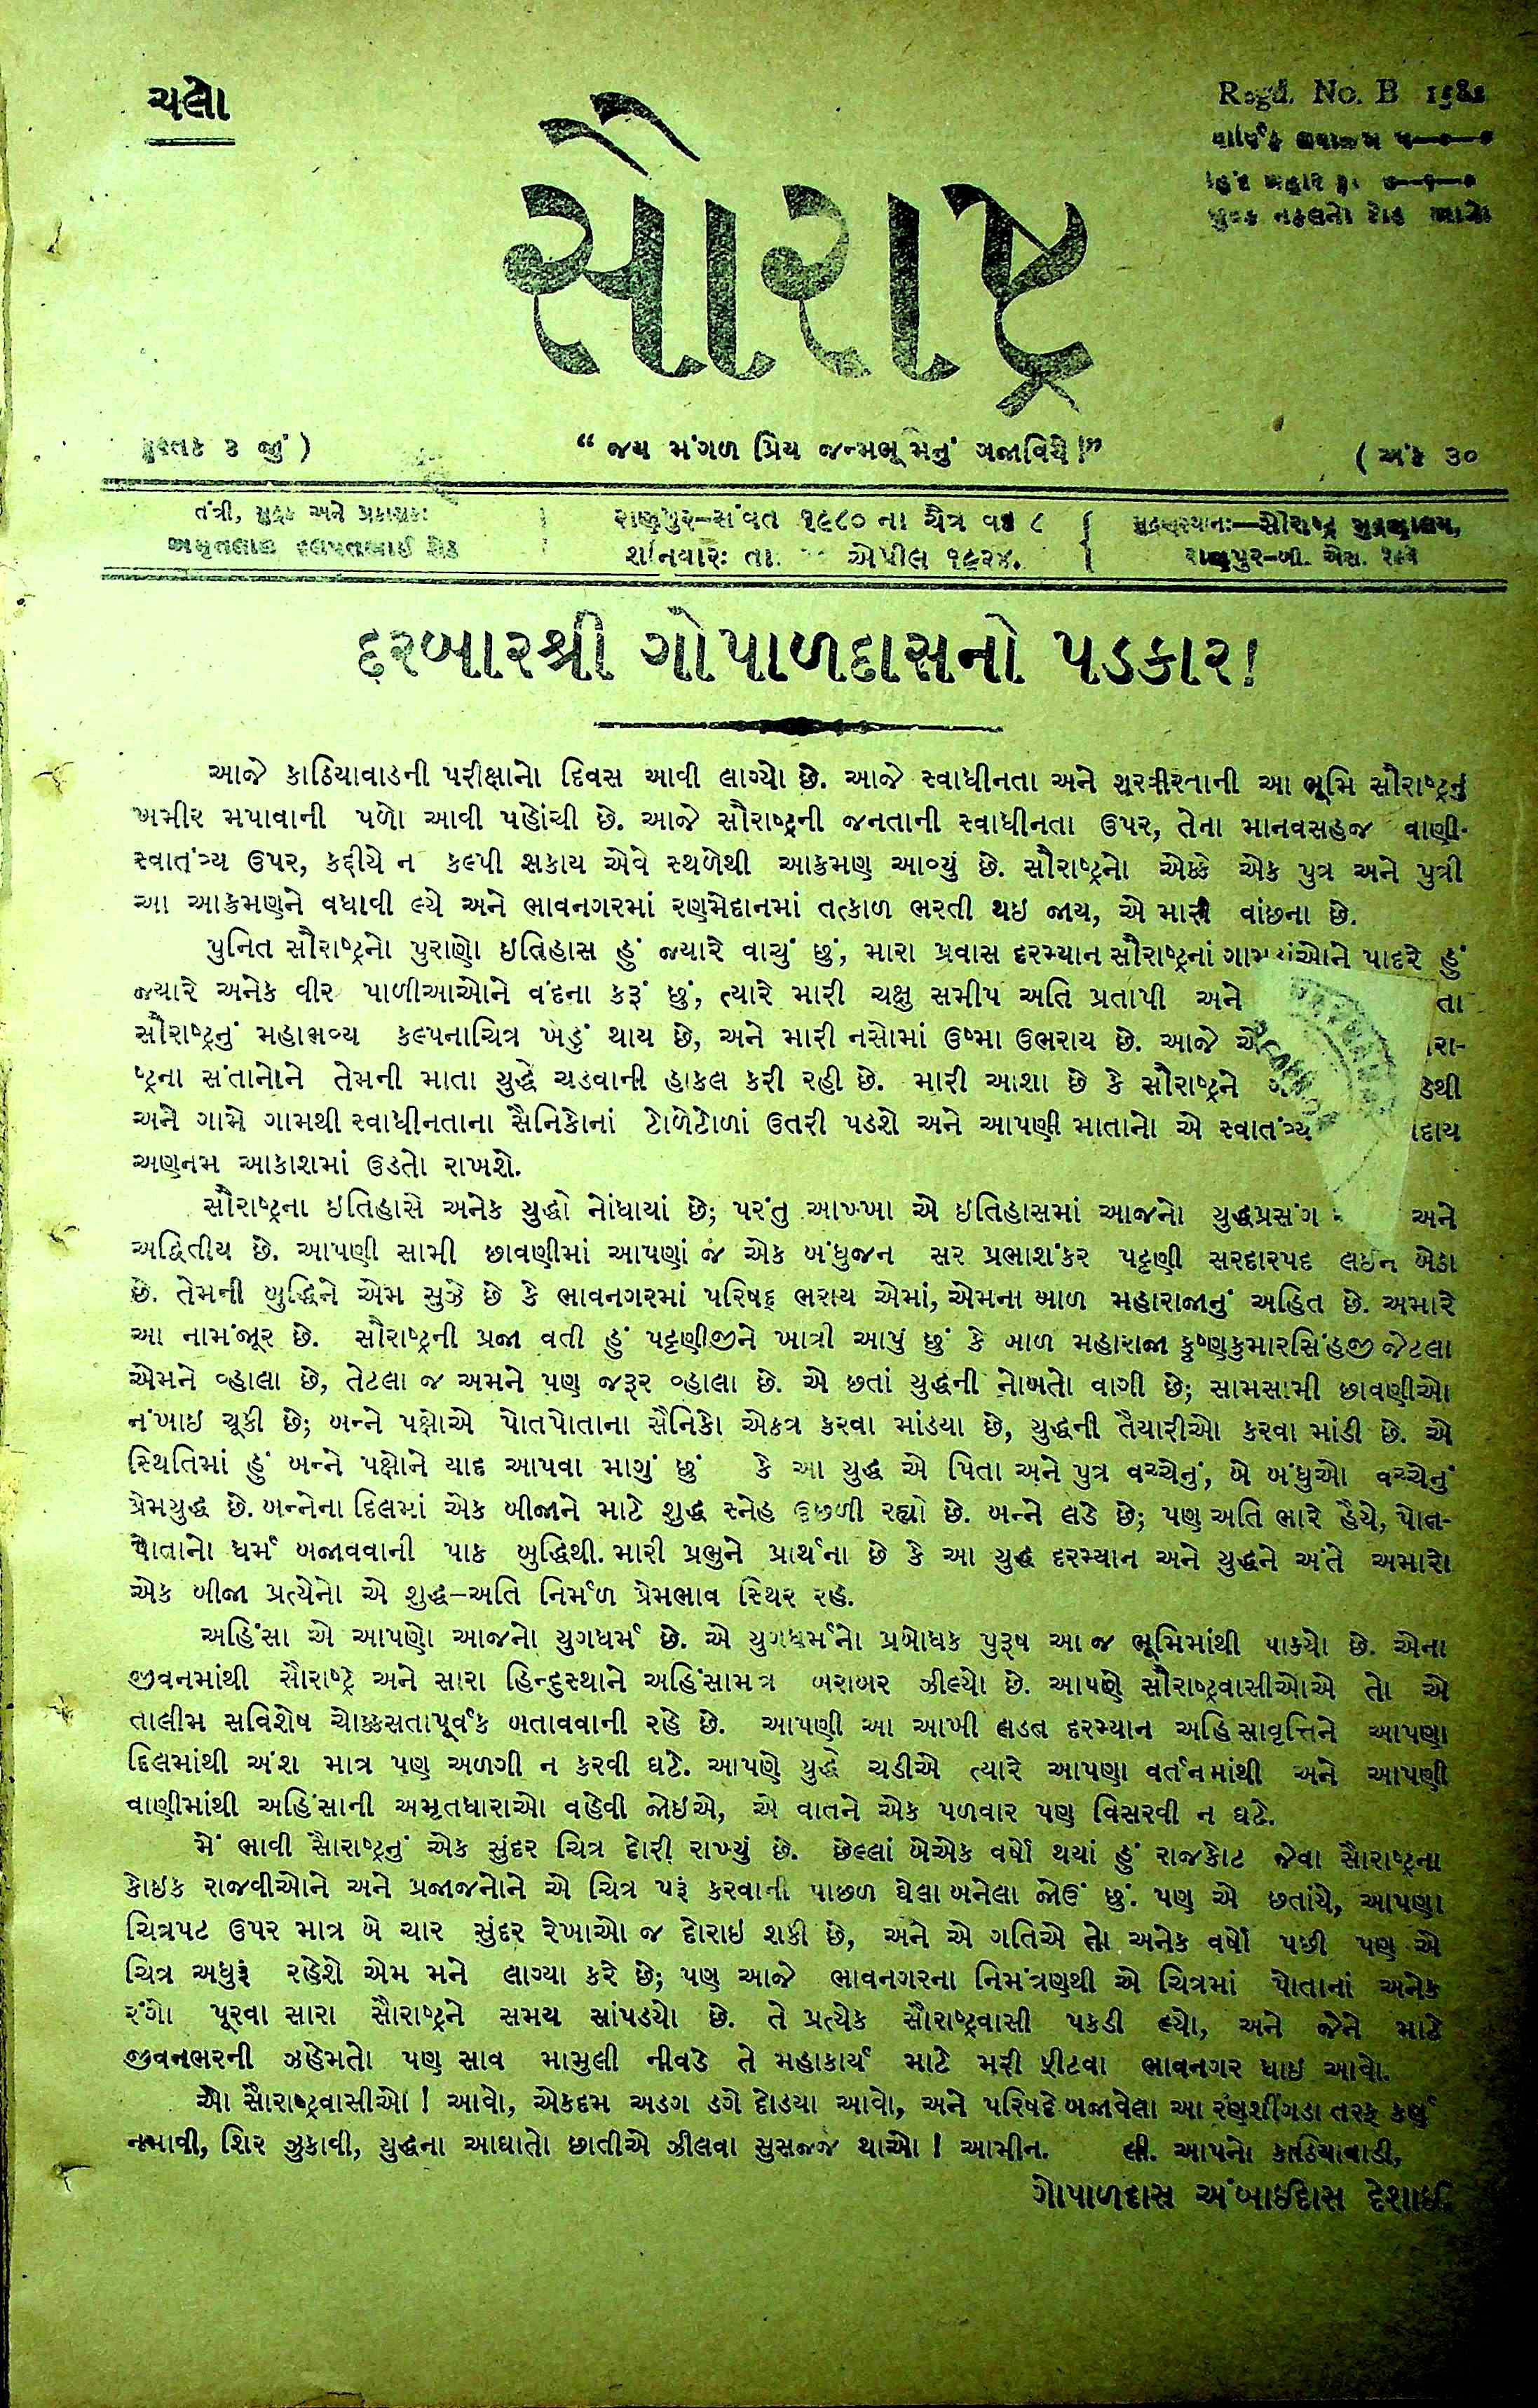 ચલો
Regd. No. B
સૌરાષ્ટ્ર
પુસ્તક ૩ જું )
“ જય મંગળ પ્રિય જન્મભૂમિનું ગજાવિયે !”
( અંક ૩૦
તંત્રી, મુદ્રક અને પ્રકાશક:
અમૃતલાલ દલપતભાઈ શેઠ
રાણપુર–સંવત ૧૯૮૦ ના ચૈત્ર વદ ૮
શનિવાર: તા. એપ્રીલ ૧૯૨૪.
મુદ્રણસ્થાન:—સૌરાષ્ટ્ર મુદ્રણાલય,
રાણપુર–બી. એસ. રેલ્વે
દરબારશ્રી ગોપાળદાસનો પડકાર!
આજે કાઠિયાવાડની પરીક્ષાનો દિવસ આવી લાગ્યો છે. આજે સ્વાધીનતા અને શૂરવીરતાની આ ભૂમિ સૌરાષ્ટ્રનું
ખમીર મપાવાની પળો આવી પહોંચી છે. આજે સૌરાષ્ટ્રની જનતાની સ્વાધીનતા ઉપર, તેના માનવસહજ વાણી-
સ્વાતંત્ર્ય ઉપર, કદીયે ન કલ્પી શકાય એવે સ્થળેથી આક્રમણ આવ્યું છે. સૌરાષ્ટ્રનો એકે એક પુત્ર અને પુત્રી
આ આક્રમણને વધાવી લ્યે અને ભાવનગરમાં રણમેદાનમાં તત્કાળ ભરતી થઇ જાય, એ મારી વાંછના છે.
પુનિત સૌરાષ્ટ્રનો પુરાણો ઇતિહાસ હું જ્યારે વાચું છું, મારા પ્રવાસ દરમ્યાન સૌરાષ્ટ્રનાં ગામડાંઓને પાદરે હું
જ્યારે અનેક વીર પાળીઆઓને વંદના કરૂં છું, ત્યારે મારી ચક્ષુ સમીપ અતિ પ્રતાપી અને તા
સૌરાષ્ટ્રનું મહાભવ્ય કલ્પનાચિત્ર ખડું થાય છે, અને મારી નસોમાં ઉષ્મા ઉભરાય છે. આજે એ રા-
ષ્ટ્રના સંતાનોને તેમની માતા યુદ્ધે ચડવાની હાકલ કરી રહી છે. મારી આશા છે કે સૌરાષ્ટ્રને ડેથી
અને ગામે ગામથી સ્વાધીનતાના સૈનિકોનાં ટોળેટોળાં ઉતરી પડશે અને આપણી માતાનો એ સ્વાતંત્ર્ય
અણનમ આકાશમાં ઉડતો રાખશે.
સૌરાષ્ટ્રના ઇતિહાસે અનેક યુદ્ધો નોંધાયાં છે; પરંતુ આખ્ખા એ ઇતિહાસમાં આજનો યુદ્ધપ્રસંગ અને
અદ્વિતીય છે. આપણી સામી છાવણીમાં આપણાં જ એક બંધુજન સર પ્રભાશંકર પટ્ટણી સરદારપદ લઇને બેઠા
છે. તેમની બુદ્ધિને એમ સુઝે છે કે ભાવનગરમાં પરિષદ્ ભરાય એમાં, એમના બાળ મહારાજાનું અહિત છે. અમારે
આ નામંજૂર છે. સૌરાષ્ટ્રની પ્રજા વતી હું પટ્ટણીજીને ખાત્રી આપું છું કે બાળ મહારાજા કૃષ્ણકુમારસિંહજી જેટલા
એમને વ્હાલા છે, તેટલા જ અમને પણ જરૂર વ્હાલા છે. એ છતાં યુદ્ધની નોબતો વાગી છે; સામસામી છાવણીઓ
નંખાઇ ચૂકી છે; બન્ને પક્ષોએ પોતપોતાના સૈનિકો એકત્ર કરવા માંડયા છે, યુદ્ધની તૈયારીઓ કરવા માંડી છે. એ
સ્થિતિમાં હું બન્ને પક્ષોને યાદ આપવા માગું છું કે આ યુદ્ધ એ પિતા અને પુત્ર વચ્ચેનું, બે બંધુઓ વચ્ચેનું
પ્રેમયુદ્ધ છે. બન્નેના દિલમાં એક બીજાને માટે શુદ્ધ સ્નેહ ઉછળી રહ્યો છે. બન્ને લડે છે; પણ અતિ ભારે હૈયે, પોત-
પોતાનો ધર્મ બજાવવાની પાક બુદ્ધિથી. મારી પ્રભુને પ્રાર્થના છે કે આ યુદ્ધ દરમ્યાન અને યુદ્ધને અંતે અમારો
એક બીજા પ્રત્યેનો એ શુદ્ધ–અતિ નિર્મળ પ્રેમભાવ સ્થિર રહે.
અહિંસા એ આપણો આજનો યુગધર્મ છે. એ યુગધર્મનો પ્રબોધક પુરૂષ આ જ ભૂમિમાંથી પાક્યો છે. એના
જીવનમાંથી સૌરાષ્ટ્રે અને સારા હિન્દુસ્થાને અહિંસામંત્ર બરાબર ઝીલ્યો છે. આપણે સૌરાષ્ટ્રવાસીઓએ તો એ
તાલીમ સવિશેષ ચોક્કસતાપૂર્વક બતાવવાની રહે છે. આપણી આ આખી લડત દરમ્યાન અહિંસાવૃત્તિને આપણા
દિલમાંથી અંશ માત્ર પણ અળગી ન કરવી ઘટે. આપણે યુદ્ધે ચડીએ ત્યારે આપણા વર્તનમાંથી અને આપણી
વાણીમાંથી અહિંસાની અમૃતધારાઓ વહેવી જોઇએ, એ વાતને એક પળવાર પણ વિસરવી ન ઘટે.
મેં ભાવી સૌરાષ્ટ્રનું એક સુંદર ચિત્ર દોરી રાખ્યું છે. છેલ્લાં બેએક વર્ષો થયાં હું રાજકોટ જેવા સૌરાષ્ટ્રના
કોઇક રાજવીઓને અને પ્રજાજનોને એ ચિત્ર પરૂં કરવાની પાછળ ઘેલા બનેલા જોઉં છું. પણ એ છતાંયે, આપણા
ચિત્રપટ ઉપર માત્ર બે ચાર સુંદર રેખાઓ જ દોરાઇ શકી છે, અને એ ગતિએ તો અનેક વર્ષો પછી પણ એ
ચિત્ર અધુરૂં રહેશે એમ મને લાગ્યા કરે છે; પણ આજે ભાવનગરના નિમંત્રણથી એ ચિત્રમાં પોતાનાં અનેક
રંગો પૂરવા સારા સૌરાષ્ટ્રને સમય સાંપડયો છે. તે પ્રત્યેક સૌરાષ્ટ્રવાસી પકડી લ્યો, અને જેને માટે
જીવનભરની ઝહેમતો પણ સાવ મામુલી નીવડે તે મહાકાર્ય માટે મરી ફીટવા ભાવનગર ધાઇ આવો.
ઓ સૌરાષ્ટ્રવાસીઓ ! આવો, એકદમ અડગ ડગે દોડયા આવો, અને પરિષદે બજાવેલા આ રણશીંગડા તરફ કર્ણ
નમાવી, શિર ઝુકાવી, યુદ્ધના આઘાતો છાતીએ ઝીલવા સુસજ્જ થાઓ ! આમીન. લી. આપનો કાઠિયાવાડી,
ગોપાળદાસ અંબાઈદાસ દેશાઈ